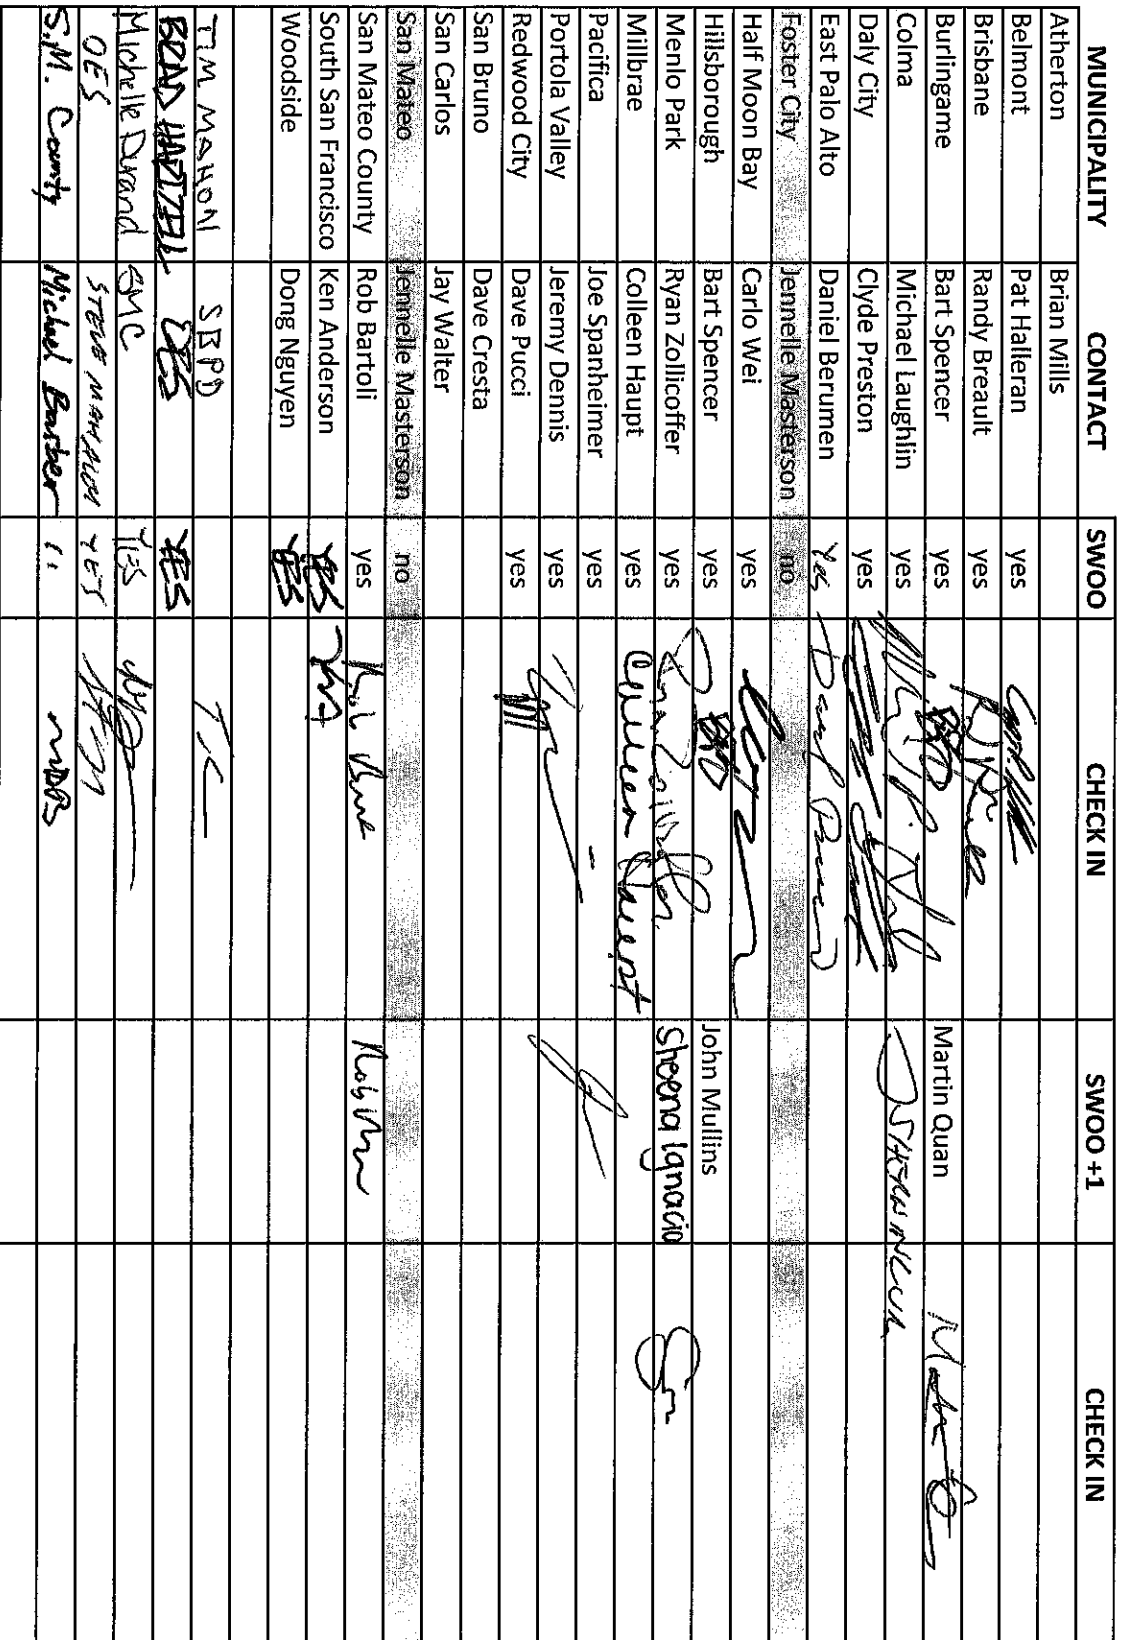 MUNICIPALITY CONTACT SWOO CHECK IN SWOO +1 CHECK IN
Atherton Brian Mills
Belmont Pat Halleran yes
Brisbane Randy Breault yes
Burlingame Bart Spencer yes Martin Quan
Colma Michael Laughlin yes
Daly City Clyde Preston yes
East Palo Alto Daniel Berumen Yes
Foster City Jennelle Masterson no
Half Moon Bay Carlo Wei yes
Hillsborough Bart Spencer yes John Mullins
Menlo Park Ryan Zollicoffer yes Sheena Ignacio
Millbrae Colleen Haupt yes Colleen Haupt
Pacifica Joe Spanheimer yes
Portola Valley Jeremy Dennis yes
Redwood City Dave Pucci yes
San Bruno Dave Cresta
San Carlos Jay Walter
San Mateo Jennelle Masterson no
San Mateo County Rob Bartoli yes
South San Francisco Ken Anderson YES
Woodside Dong Nguyen YES
TIM MAHON SBPD
BRAD HARTZELL OES YES
Michelle Durand SMC YES
OES STEVE MAHALEY YES
S.M. County Michael Barber ''